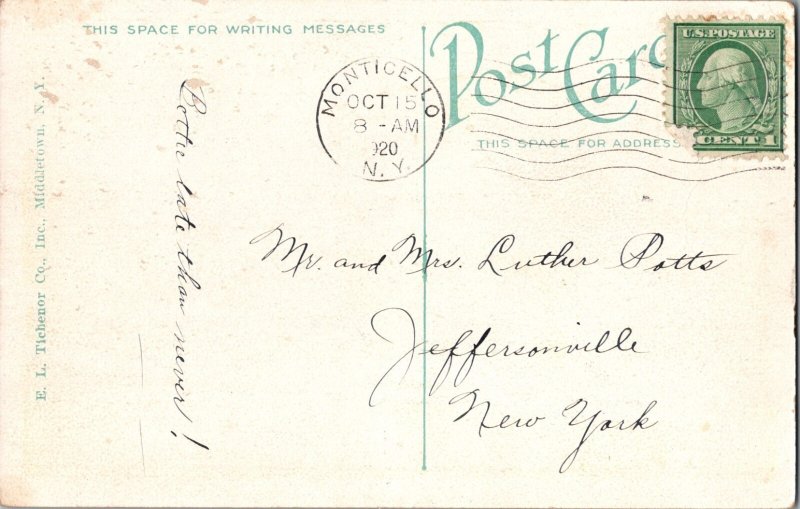 THIS SPACE FOR WRITING MESSAGES
Post Card
THIS SPACE FOR ADDRESS
U.S. POSTAGE
CENT 1
MONTICELLO
OCT 15
8 - AM
1920
N. Y.
E. L. Tichenor Co., Inc., Middletown, N. Y.
late than never!
Mr. and Mrs. Luther Potts
Jeffersonville
New York